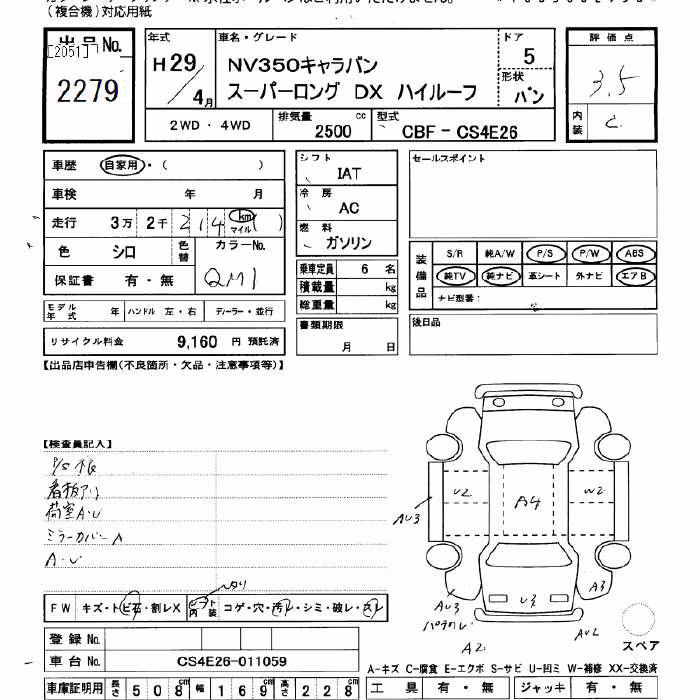 (複合機)対応用紙
出品No.
[2051]
2279
年式
H29/4月
車名・グレード
NV350キャラバン
スーパーロング DX ハイルーフ
ドア
5
形状
バン
評価点
3.5
内装 C
2WD・4WD
排気量 2500 cc
型式 CBF - CS4E26
車歴 自家用・( )
車検 年 月
走行 3万 2千 214 km マイル ( )
色 シロ 色替 カラーNo.
QM1
保証書 有・無
モデル年式 年 ハンドル 左・右 ディーラー・並行
リサイクル料金 9,160 円 預託済
シフト
IAT
冷房
AC
燃料
ガソリン
乗車定員 6 名
積載量 kg
総重量 kg
書類期限
月 日
セールスポイント
装備品
S/R 純A/W P/S P/W ABS
純TV 純ナビ 革シート 外ナビ エアB
ナビ型番:
後日品
【出品店申告欄(不良箇所・欠品・注意事項等)】
【検査員記入】
P/S不良
看板アリ
荷室A・U
ミラーカバーA
A・U
FW キズ・トビ石・割レX
内装 コゲ・穴・汚レ・シミ・破レ・スレ
登録 No.
車台 No. CS4E26-011059
車庫証明用 長さ 508cm 幅 169cm 高さ 228cm
U2
A4
W2
AU3
AU3
U3
A3
A2
AU2
スペア
A-キズ C-腐食 E-エクボ S-サビ U-凹ミ W-補修 XX-交換済
工具 有・無 ジャッキ 有・無